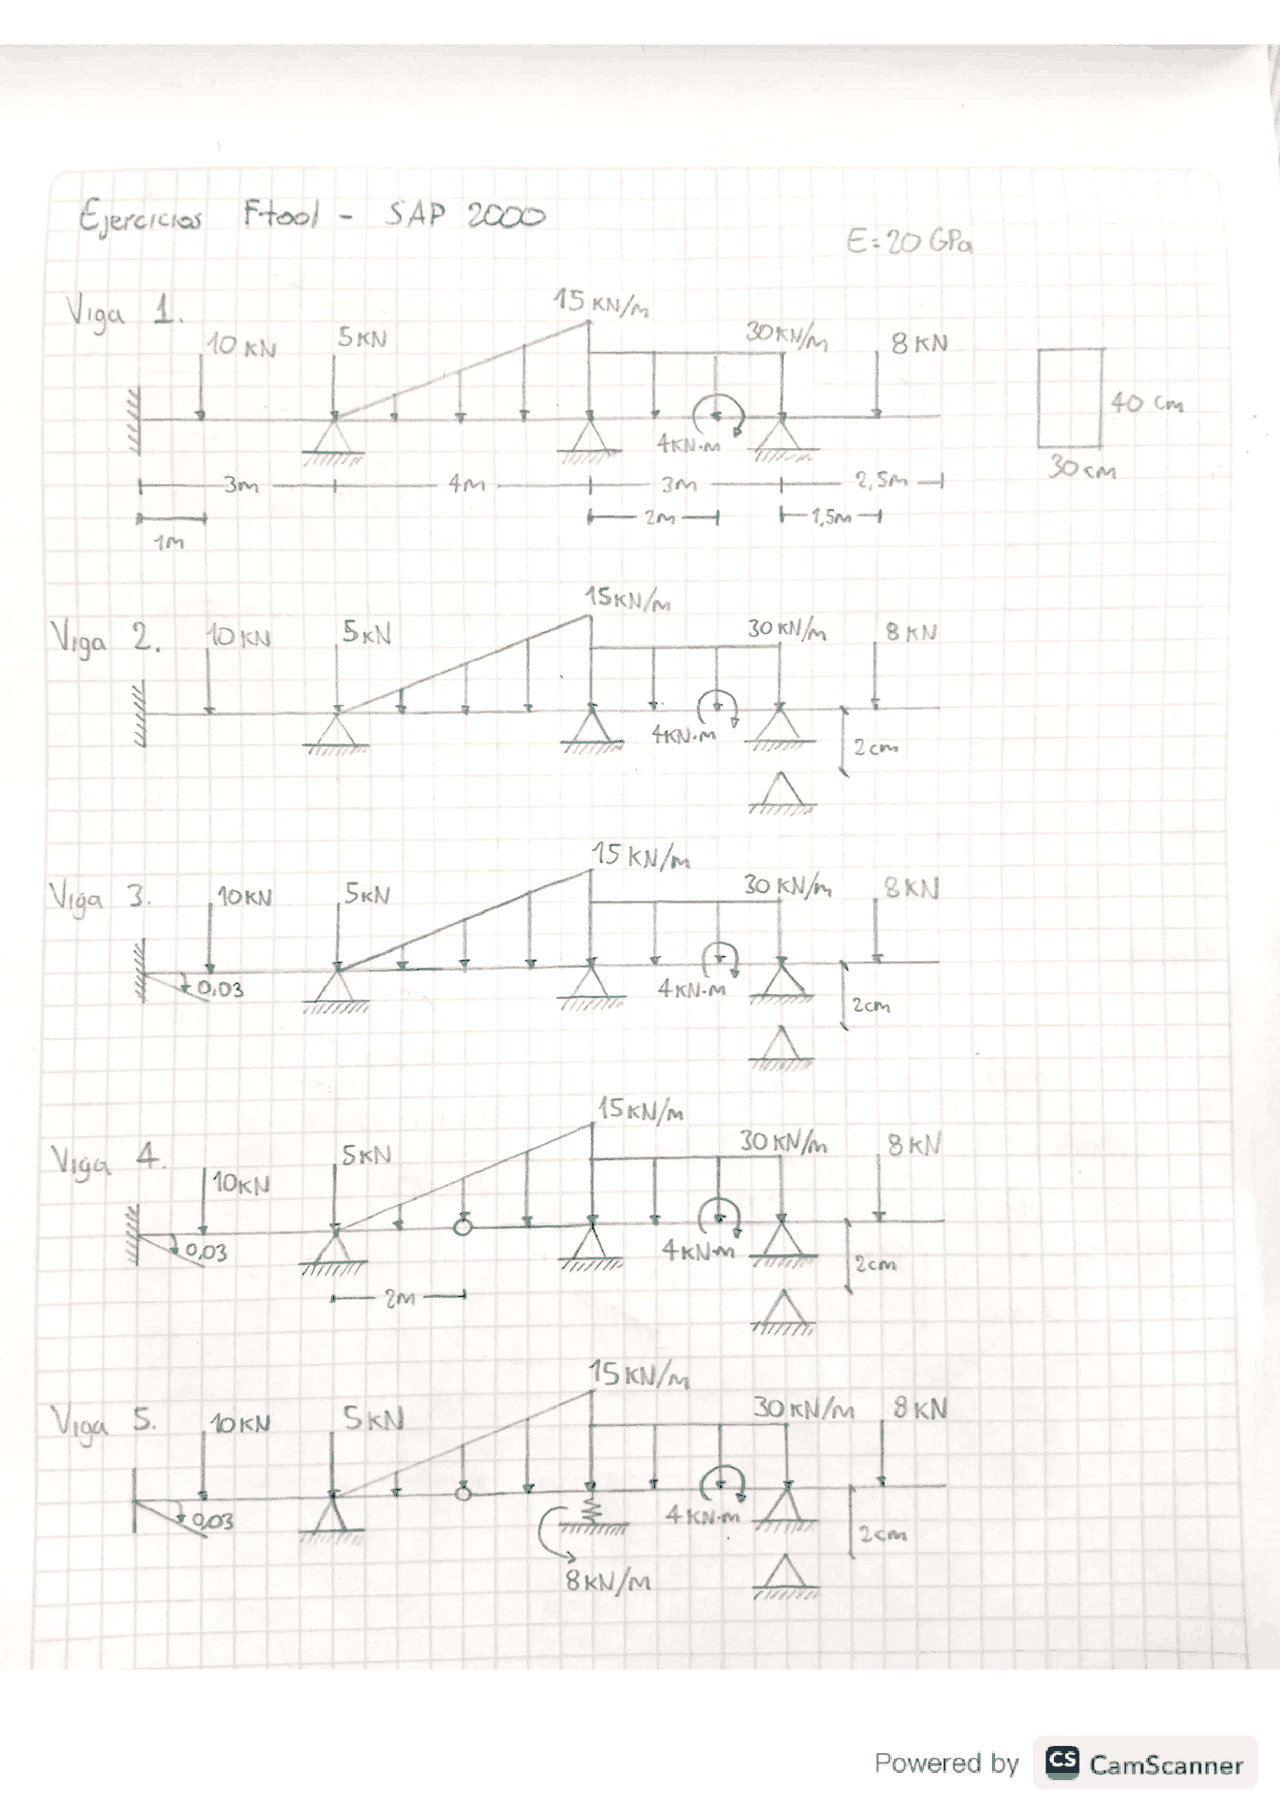 Ejercicios Ftool - SAP 2000
E=20 GPa
Viga 1.
15 KN/m
10 KN
5KN
30KN/m
8 KN
40 cm
30cm
4KN·m
3m
4m
3m
2,5m
1m
2m
1,5m
Viga 2.
10 KN
5KN
15KN/m
30 KN/m
8 KN
4KN·m
2cm
Viga 3.
10KN
5KN
15 KN/m
30 KN/m
8KN
0,03
4KN·m
2cm
Viga 4.
10KN
5KN
15KN/m
30 KN/m
8KN
0,03
4KN·m
2cm
2m
Viga 5.
10KN
5KN
15KN/m
30KN/m
8KN
0,03
4KN·m
2cm
8KN/m
Powered by CS CamScanner